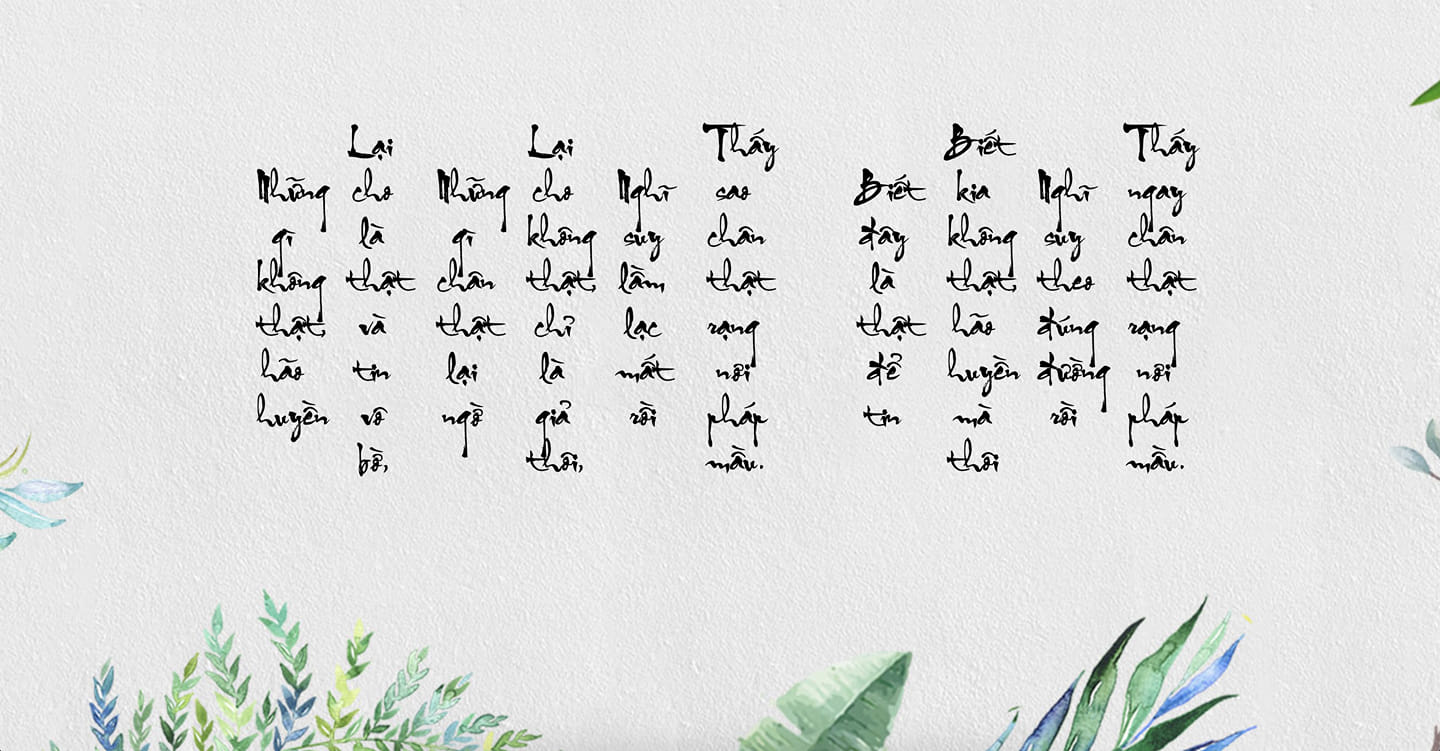 Những gì không thật, hão huyền
Lại cho là thật và tin vô bờ,
Những gì chân thật lại ngờ
Lại cho không thật, chỉ là giả thôi,
Nghĩ suy lầm lạc mất rồi
Thấy sao chân thật rạng nơi pháp mầu.
Biết đây là thật để tin
Biết kia không thật, hão huyền mà thôi
Nghĩ suy theo đúng đường rồi
Thấy ngay chân thật rạng nơi pháp mầu.